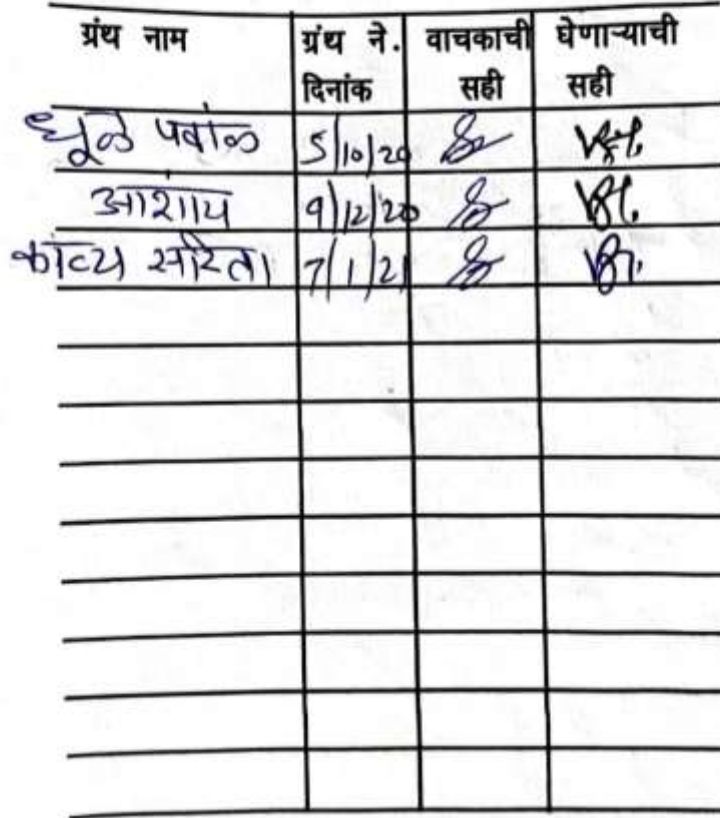 ग्रंथ नाम ग्रंथ ने. दिनांक वाचकाची सही घेणाऱ्याची सही
5/10/20
आशय 9/12/20
काव्य सरिता 7/1/21